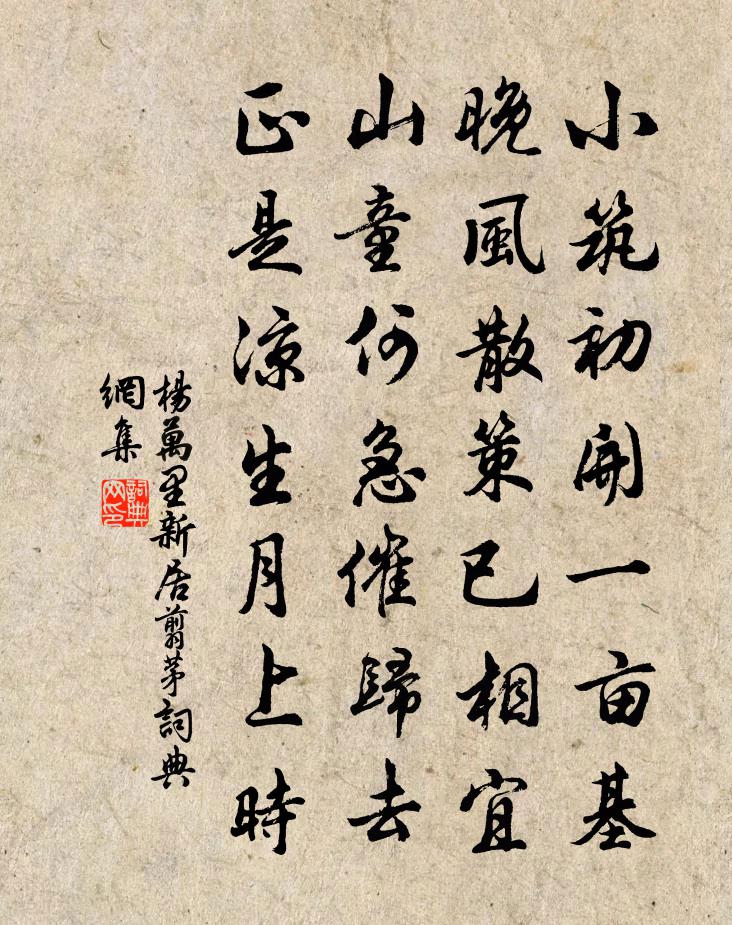 小筑初開一亩基
晚風散策已相宜
山童何急催歸去
正是凉生月上時
楊萬里新居翦茅詞典
網集
詞典
网印